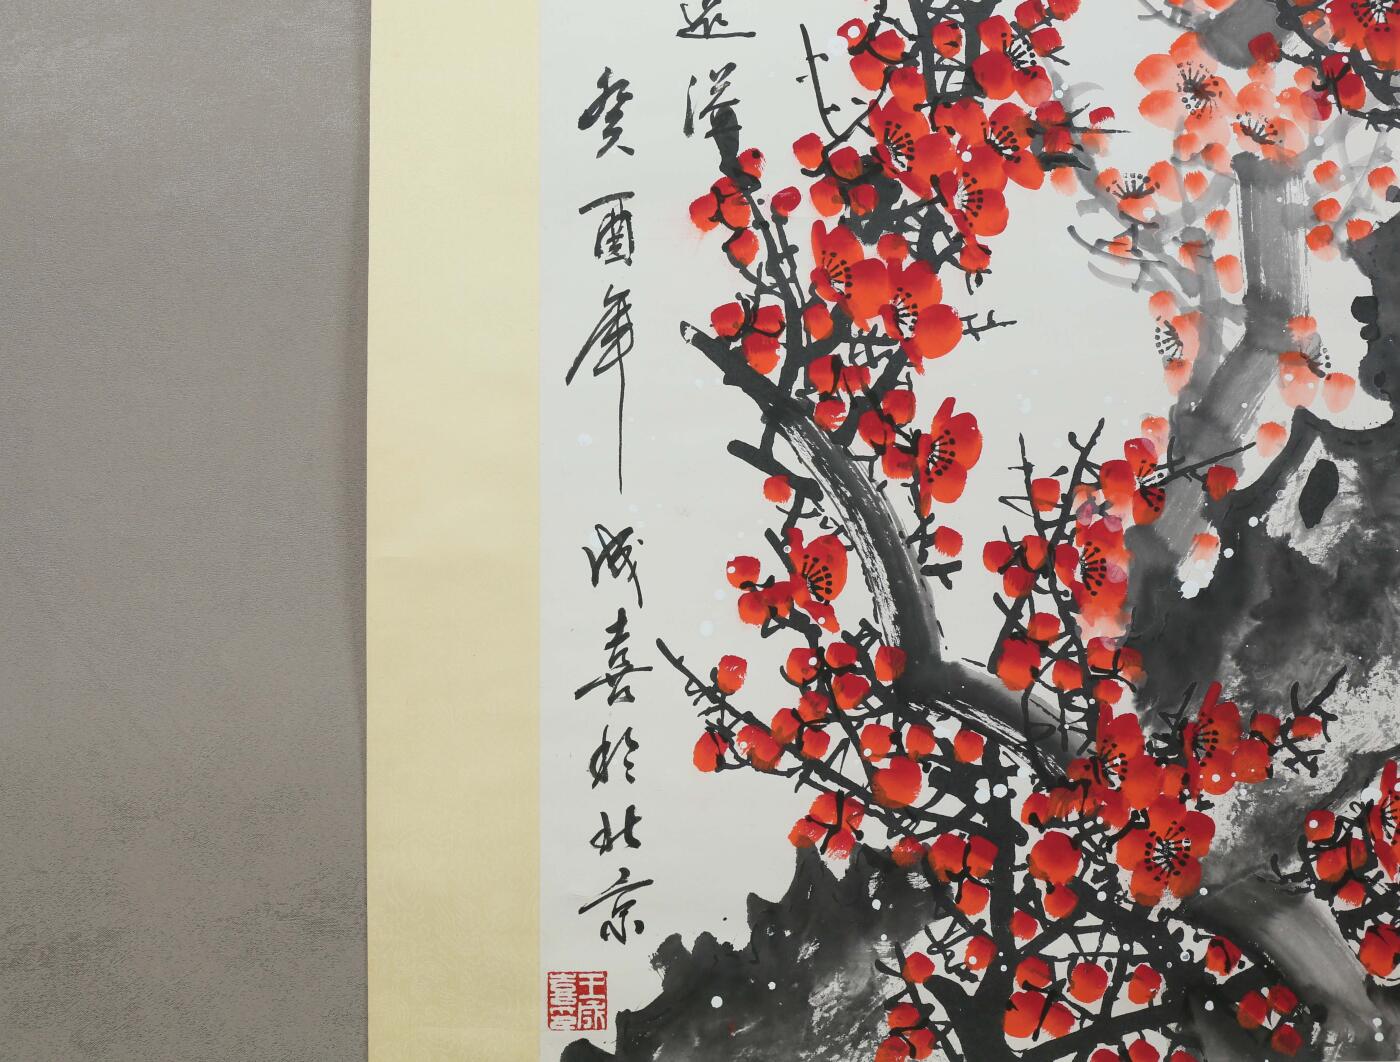 遠溢
癸酉年 成喜於北京
王成喜印